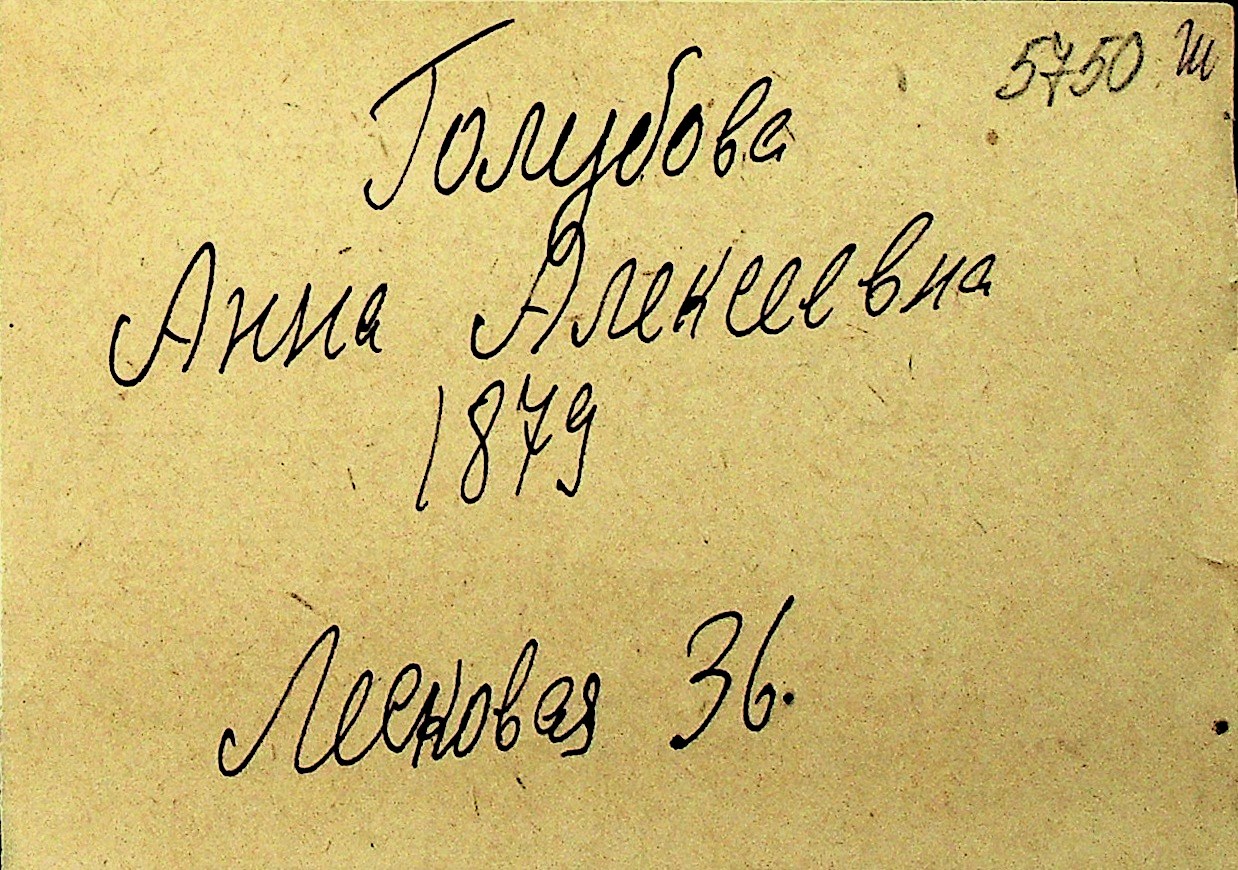 5750 Ш
Голубова
Анна Алексеевна
1879
Лесковая 36.